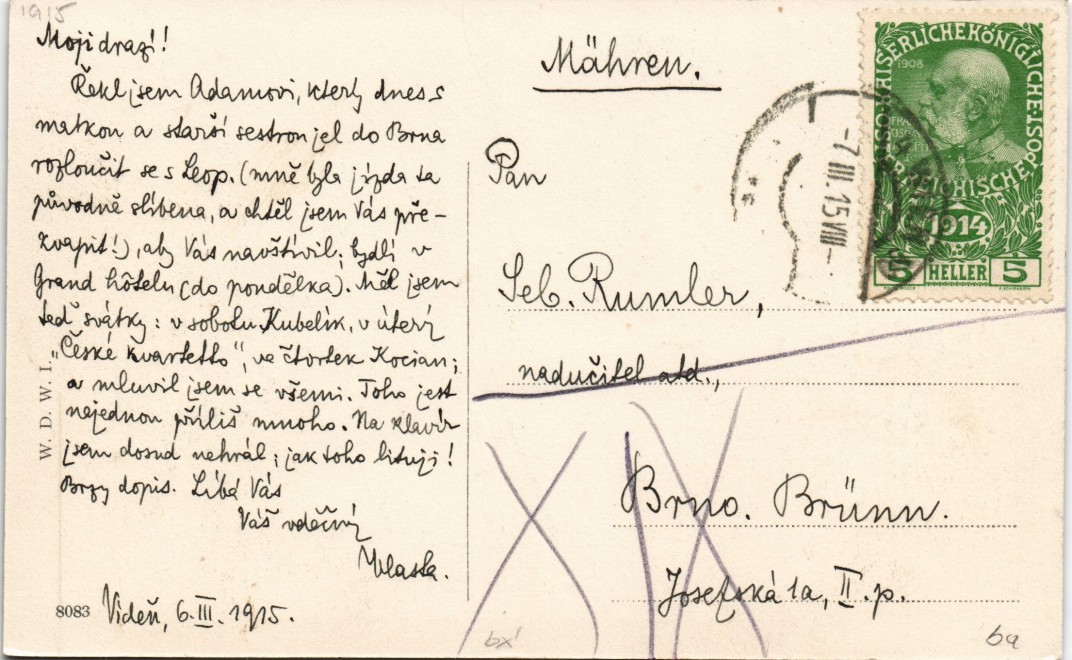 1915
Moji drazí!
Řekl jsem Adamovi, který dnes s
matkou a starší sestrou jel do Brna
rozloučit se s Leop. (mně byla jízda ta
původně slíbena, a chtěl jsem Vás pře-
kvapit!), aby Vás navštívil; bydlí v
Grand hôtelu (do pondělka). Měl jsem
teď svátky: v sobotu Kubelík, v úterý
„České kvartetto", ve čtvrtek Kocian;
a mluvil jsem se všemi. Toho jest
nejednou příliš mnoho. Na klavír
jsem dosud nehrál; jak toho lituji!
Brzy dopis. Líbá Vás
Váš vděčný
Vlasta.
Vídeň, 6.III.1915.
8083
W. D. W. I.
Mähren.
Pan
Seb. Rumler,
nadučitel atd.,
Brno. Brünn.
Josefská 1a, II.p.
bx'
ba
-7.III.15 VIII-
KAISERLICHEKÖNIGLICHE
ÖSTERREICHISCHE POST
1908
1914
5 HELLER 5